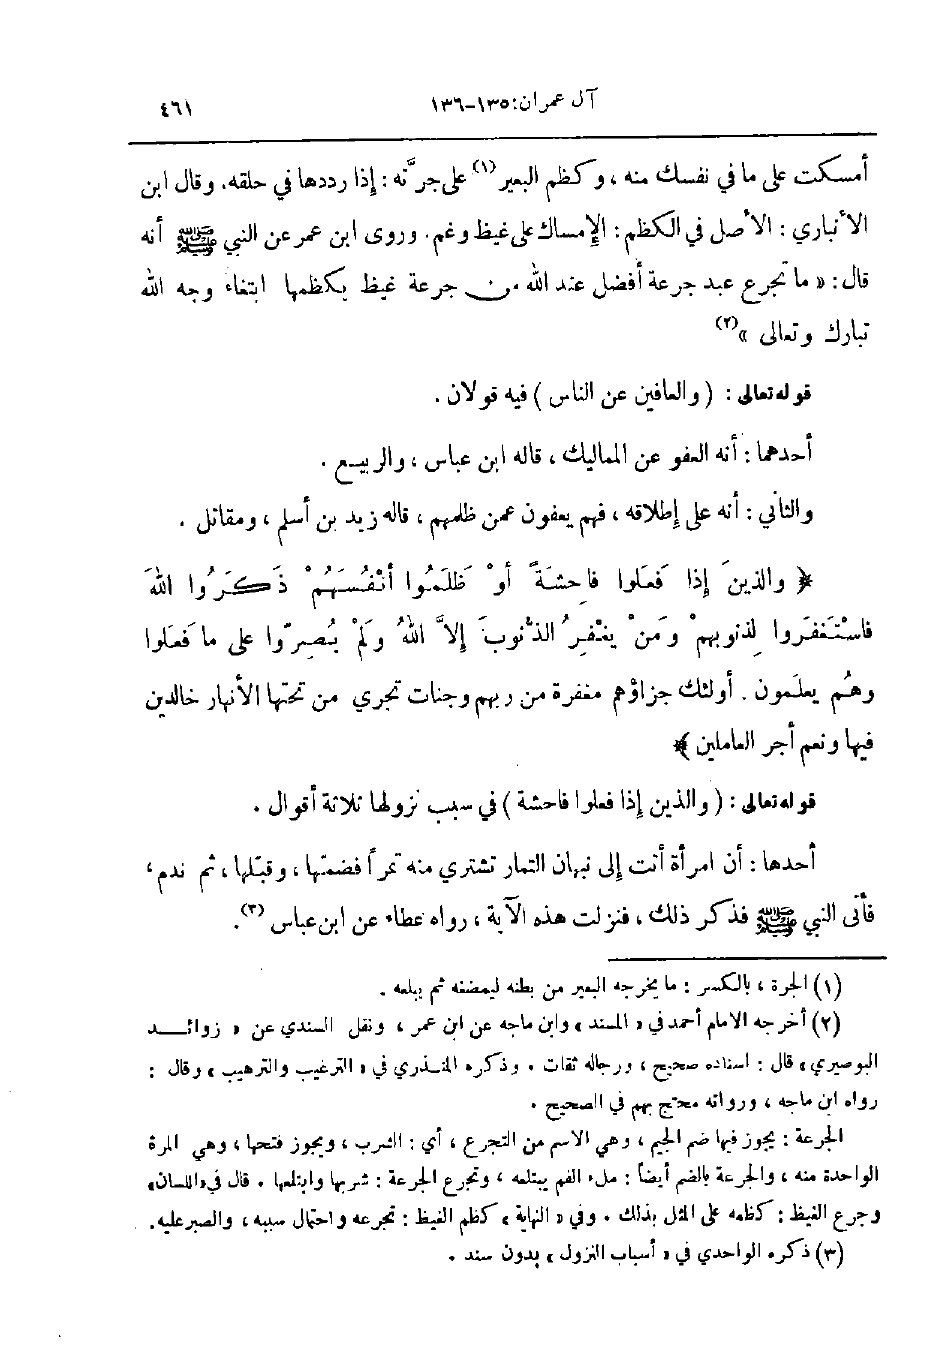 آل عمران: ١٣٥-١٣٦
٤٦١
أمسكت على ما في نفسك منه ، وكظم البعير (١) على جرَّته : إذا رددها في حلقه. وقال ابن
الأنباري : الأصل في الكظم : الإمساك على غيظ وغم. وروى ابن عمر عن النبي ﷺ أنه
قال : « ما تجرع عبد جرعة أفضل عند الله من جرعة غيظ يكظمها ابتغاء وجه الله
تبارك وتعالى » (٢)
قوله تعالى : ( والعافين عن الناس ) فيه قولان .
أحدهما : أنه العفو عن المماليك ، قاله ابن عباس ، والربيع .
والثاني : أنه على إطلاقه ، فهم يعفون عمن ظلمهم ، قاله زيد بن أسلم ، ومقاتل .
﴿ والذينَ إذا فَعلوا فاحِشةً أوْ ظَلَمُوا أنْفُسَهُمْ ذَكَرُوا اللهَ
فاسْتَغفَروا لِذنوبهمْ ومَنْ يغْفِرُ الذُّنوبَ إلاَّ اللهُ ولَمْ يُصِرّوا على ما فَعلوا
وهُم يعلَمون . أولئك جزاؤهم مغفرة من ربهم وجنات تجري من تحتها الأنهار خالدين
فيها ونعم أجر العاملين ﴾
قوله تعالى : ( والذين إذا فعلوا فاحشة ) في سبب نزولها ثلاثة أقوال .
أحدها : أن امرأة أتت إلى نبهان التمار تشتري منه تمراً فضمتها ، وقبّلها ، ثم ندم ،
فأتى النبي ﷺ فذكر ذلك ، فنزلت هذه الآية ، رواه عطاء عن ابن عباس (٣) .
(١) الجرة ، بالكسر : ما يخرجه البعير من بطنه ليمضغه ثم يبلعه .
(٢) أخرجه الامام أحمد في « المسند » وابن ماجه عن ابن عمر ، ونقل السندي عن « زوائد
البوصيري » قال : اسناده صحيح ، ورجاله ثقات . وذكره المنذري في « الترغيب والترهيب » وقال :
رواه ابن ماجه ، ورواته محتج بهم في الصحيح .
الجرعة : يجوز فيها ضم الجيم ، وهي الاسم من التجرع ، أي : الشرب ، ويجوز فتحها ، وهي المرة
الواحدة منه ، والجرعة بالضم أيضاً : ملء الفم يبتلعه ، وتجرع الجرعة : شربها وابتلعها . قال في « اللسان »
وجرع الغيظ : كظمه على المثل بذلك . وفي « النهاية » كظم الغيظ : تجرعه واحتمال سببه ، والصبر عليه .
(٣) ذكره الواحدي في « أسباب النزول » بدون سند .